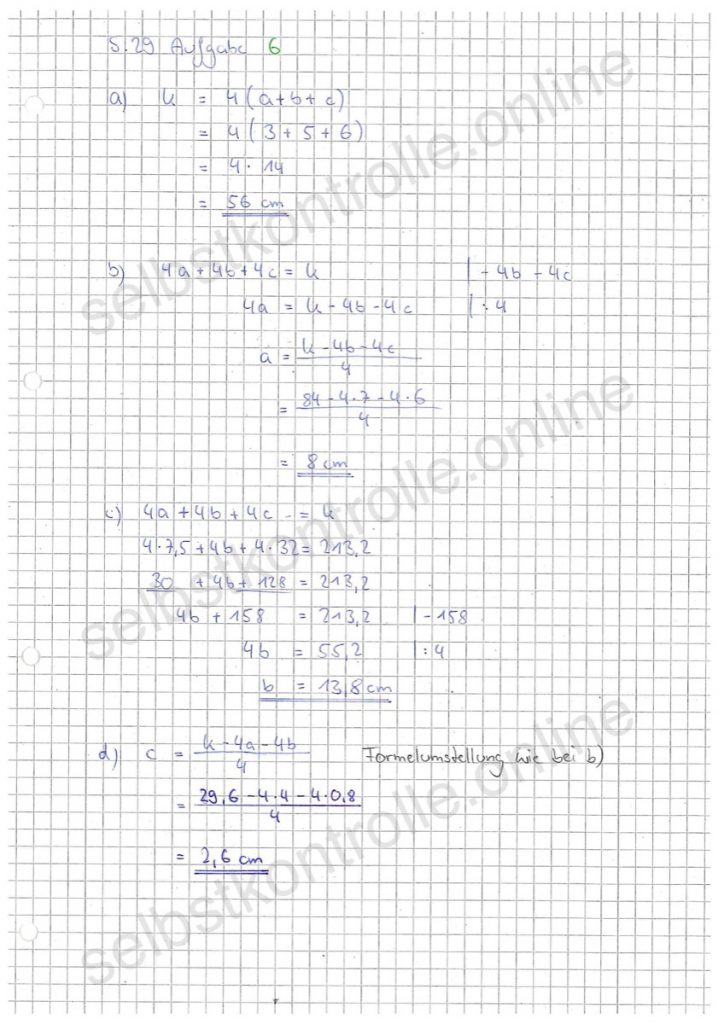 S. 29 Aufgabe 6
a) k = 4(a+b+c)
= 4(3+5+6)
= 4·14
= 56 cm
b) 4a+4b+4c = k |-4b-4c
4a = k-4b-4c |:4
a = (k-4b-4c)/4
= (84-4·7-4·6)/4
= 8 cm
c) 4a+4b+4c = k
4·7,5+4b+4·32 = 213,2
30 + 4b + 128 = 213,2
4b + 158 = 213,2 |-158
4b = 55,2 |:4
b = 13,8 cm
d) c = (k-4a-4b)/4 Formelumstellung wie bei b)
= (29,6-4·4-4·0,8)/4
= 2,6 cm
selbstkontrolle.online
selbstkontrolle.online
selbstkontrolle.online